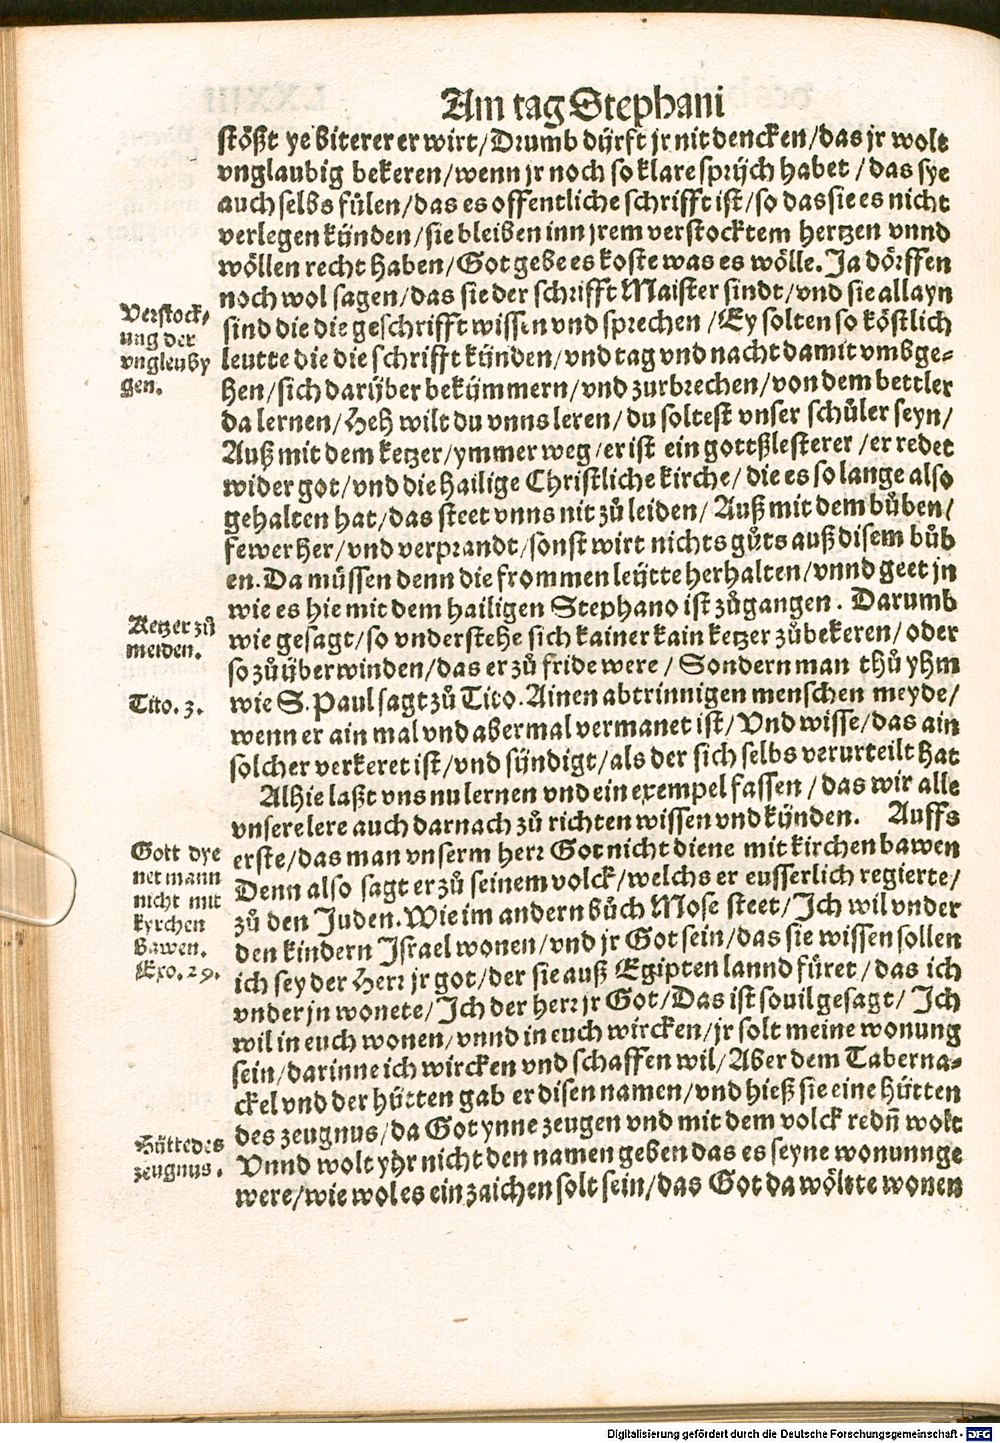 Am tag Stephani
stößt ye biterer er wirt/Drumb dürft jr nit dencken/das jr wolt
vnglaubig bekeren/wenn jr noch so klare sprüch habet/das sye
auch selbs fülen/das es offentliche schrifft ist/so das sie es nicht
verlegen künden/sie bleiben inn jrem verstocktem hertzen vnnd
wöllen recht haben/Got gebe es koste was es wölle. Ja dörffen
noch wol sagen/das sie der schrifft Maister sindt/vnd sie allayn
sind die die geschrifft wissen vnd sprechen/Ey solten so köstlich
leutte die die schrifft künden/vnd tag vnd nacht damit vmbge-
hen/sich darüber bekümmern/vnd zurbrechen/von dem bettler
da lernen/Heh wilt du vnns leren/du soltest vnser schůler seyn/
Auß mit dem ketzer/ymmer weg/er ist ein gottßlesterer/er redet
wider got/vnd die hailige Christliche kirche/die es so lange also
gehalten hat/das steet vnns nit zů leiden/Auß mit dem bůben/
fewer her/vnd verprandt/sonst wirt nichts gůts auß disem bůb
en. Da müssen denn die frommen leütte herhalten/vnnd geet jn
wie es hie mit dem hailigen Stephano ist zůgangen. Darumb
wie gesagt/so vnderstehe sich kainer kain ketzer zůbekeren/oder
so zůüberwinden/das er zů fride were/Sondern man thů yhm
wie S. Paul sagt zů Tito. Ainen abtrinnigen menschen meyde/
wenn er ain mal vnd abermal vermanet ist/Vnd wisse/das ain
solcher verkeret ist/vnd sündigt/als der sich selbs verurteilt hat
Alhie laßt vns nu lernen vnd ein exempel fassen/das wir alle
vnsere lere auch darnach zů richten wissen vnd künden. Auffs
erste/das man vnserm herr Got nicht diene mit kirchen bawen
Denn also sagt er zů seinem volck/welchs er eusserlich regierte/
zů den Juden. Wie im andern bůch Mose steet/Ich wil vnder
den kindern Israel wonen/vnd jr Got sein/das sie wissen sollen
ich sey der Herr jr got/der sie auß Egipten lannd füret/das ich
vnder jn wonete/Ich der herr jr Got/Das ist souil gesagt/Ich
wil in euch wonen/vnnd in euch wircken/jr solt meine wonung
sein/darinne ich wircken vnd schaffen wil/Aber dem Taberna-
ckel vnd der hütten gab er disen namen/vnd hieß sie eine Hütten
des zeugnus/da Got ynne zeugen vnd mit dem volck redñ wolt
Vnnd wolt yhr nicht den namen geben das es seyne wonunnge
were/wie wol es ein zaichen solt sein/das Got da wöltte wonen
Verstock/
ung der
vngleuby
gen.
Ketzer zů
meiden.
Tito. 3.
Gott dye
net mann
nicht mit
kyrchen
bawen.
Exo. 29.
Hütte des
zeugnus.
Digitalisierung gefördert durch die Deutsche Forschungsgemeinschaft - DFG